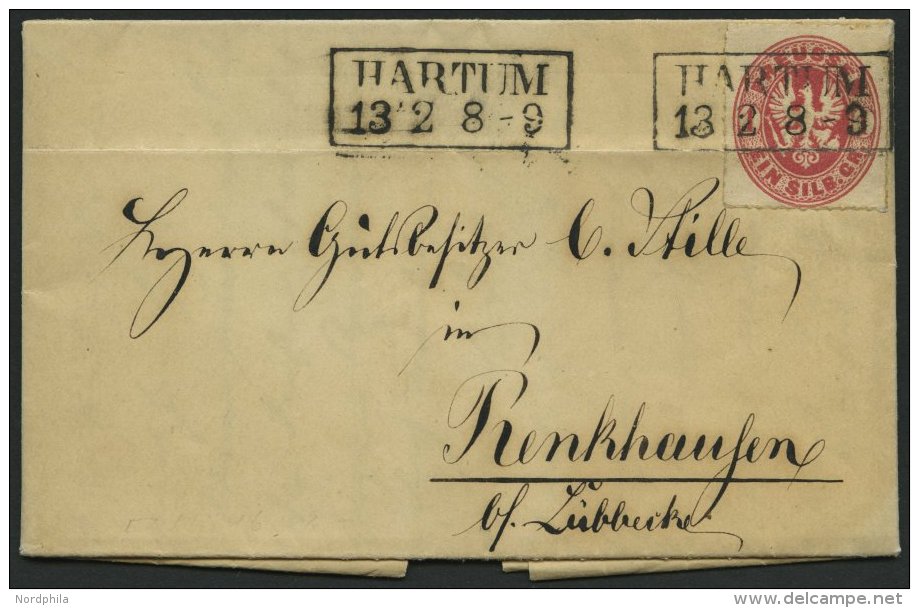 HARTUM
13 2 8-9
HARTUM
13 2 8-9
EIN SILB.GR.
Herrn Gutsbesitzer C. Stille
in
Renkhausen
b/. Lübbecke.
Nordphila
delcampe.net